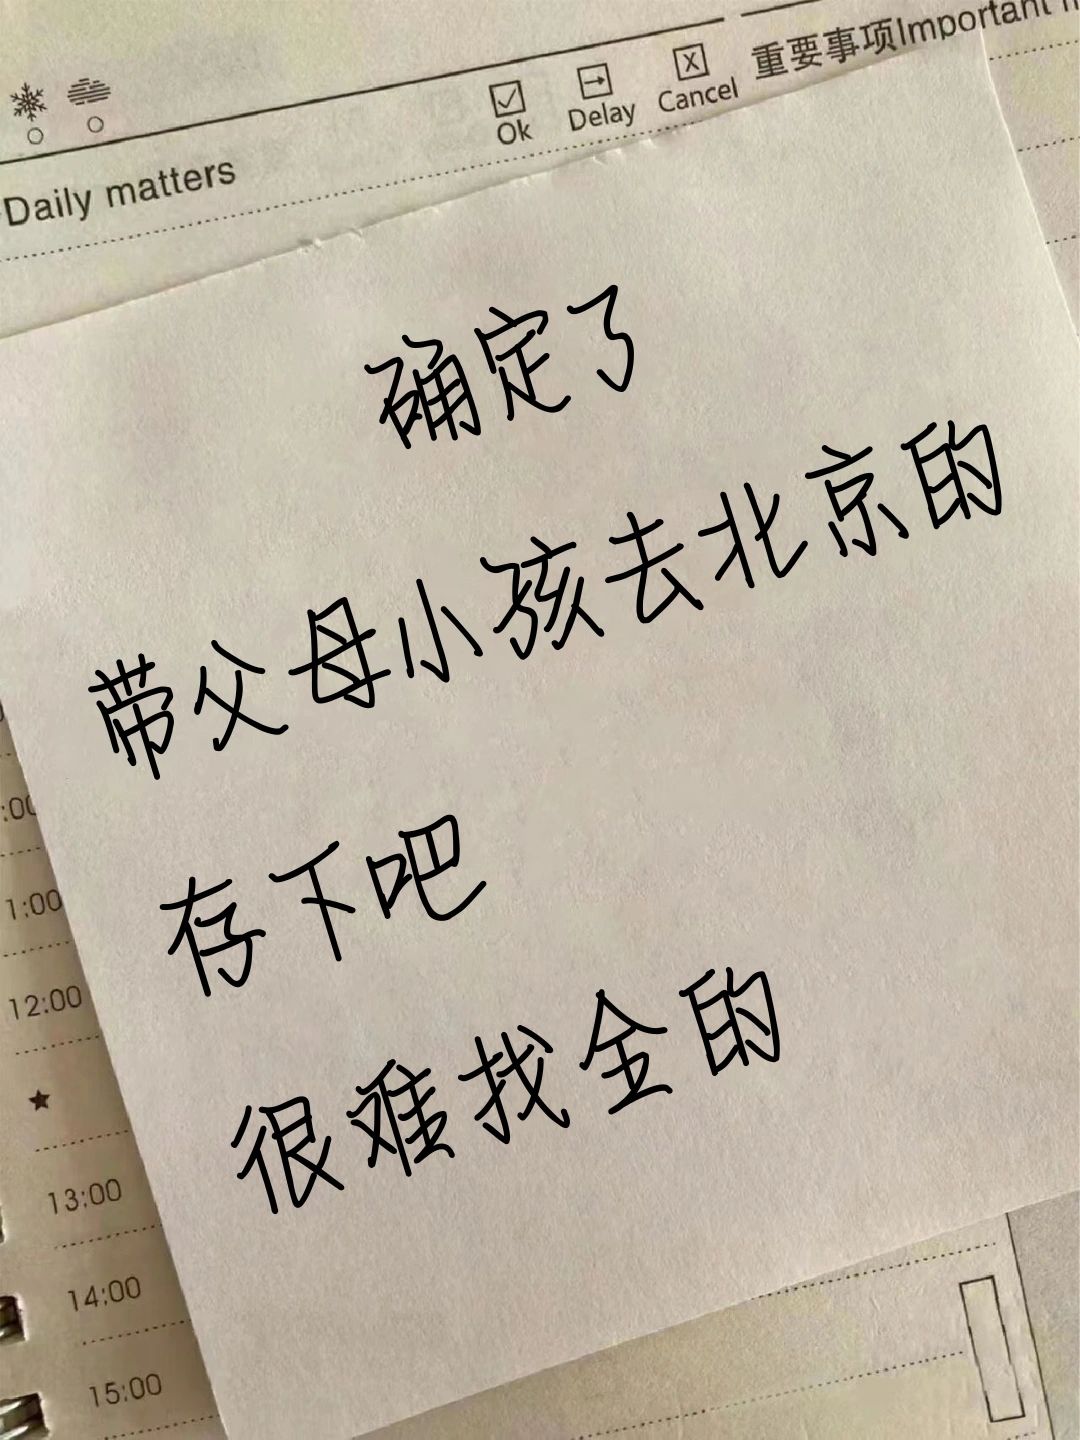 重要事项Important
Ok
Delay
Cancel
Daily matters
确定了
带父母小孩去北京的
存下吧
很难找全的
:00
1:00
12:00
13:00
14:00
15:00